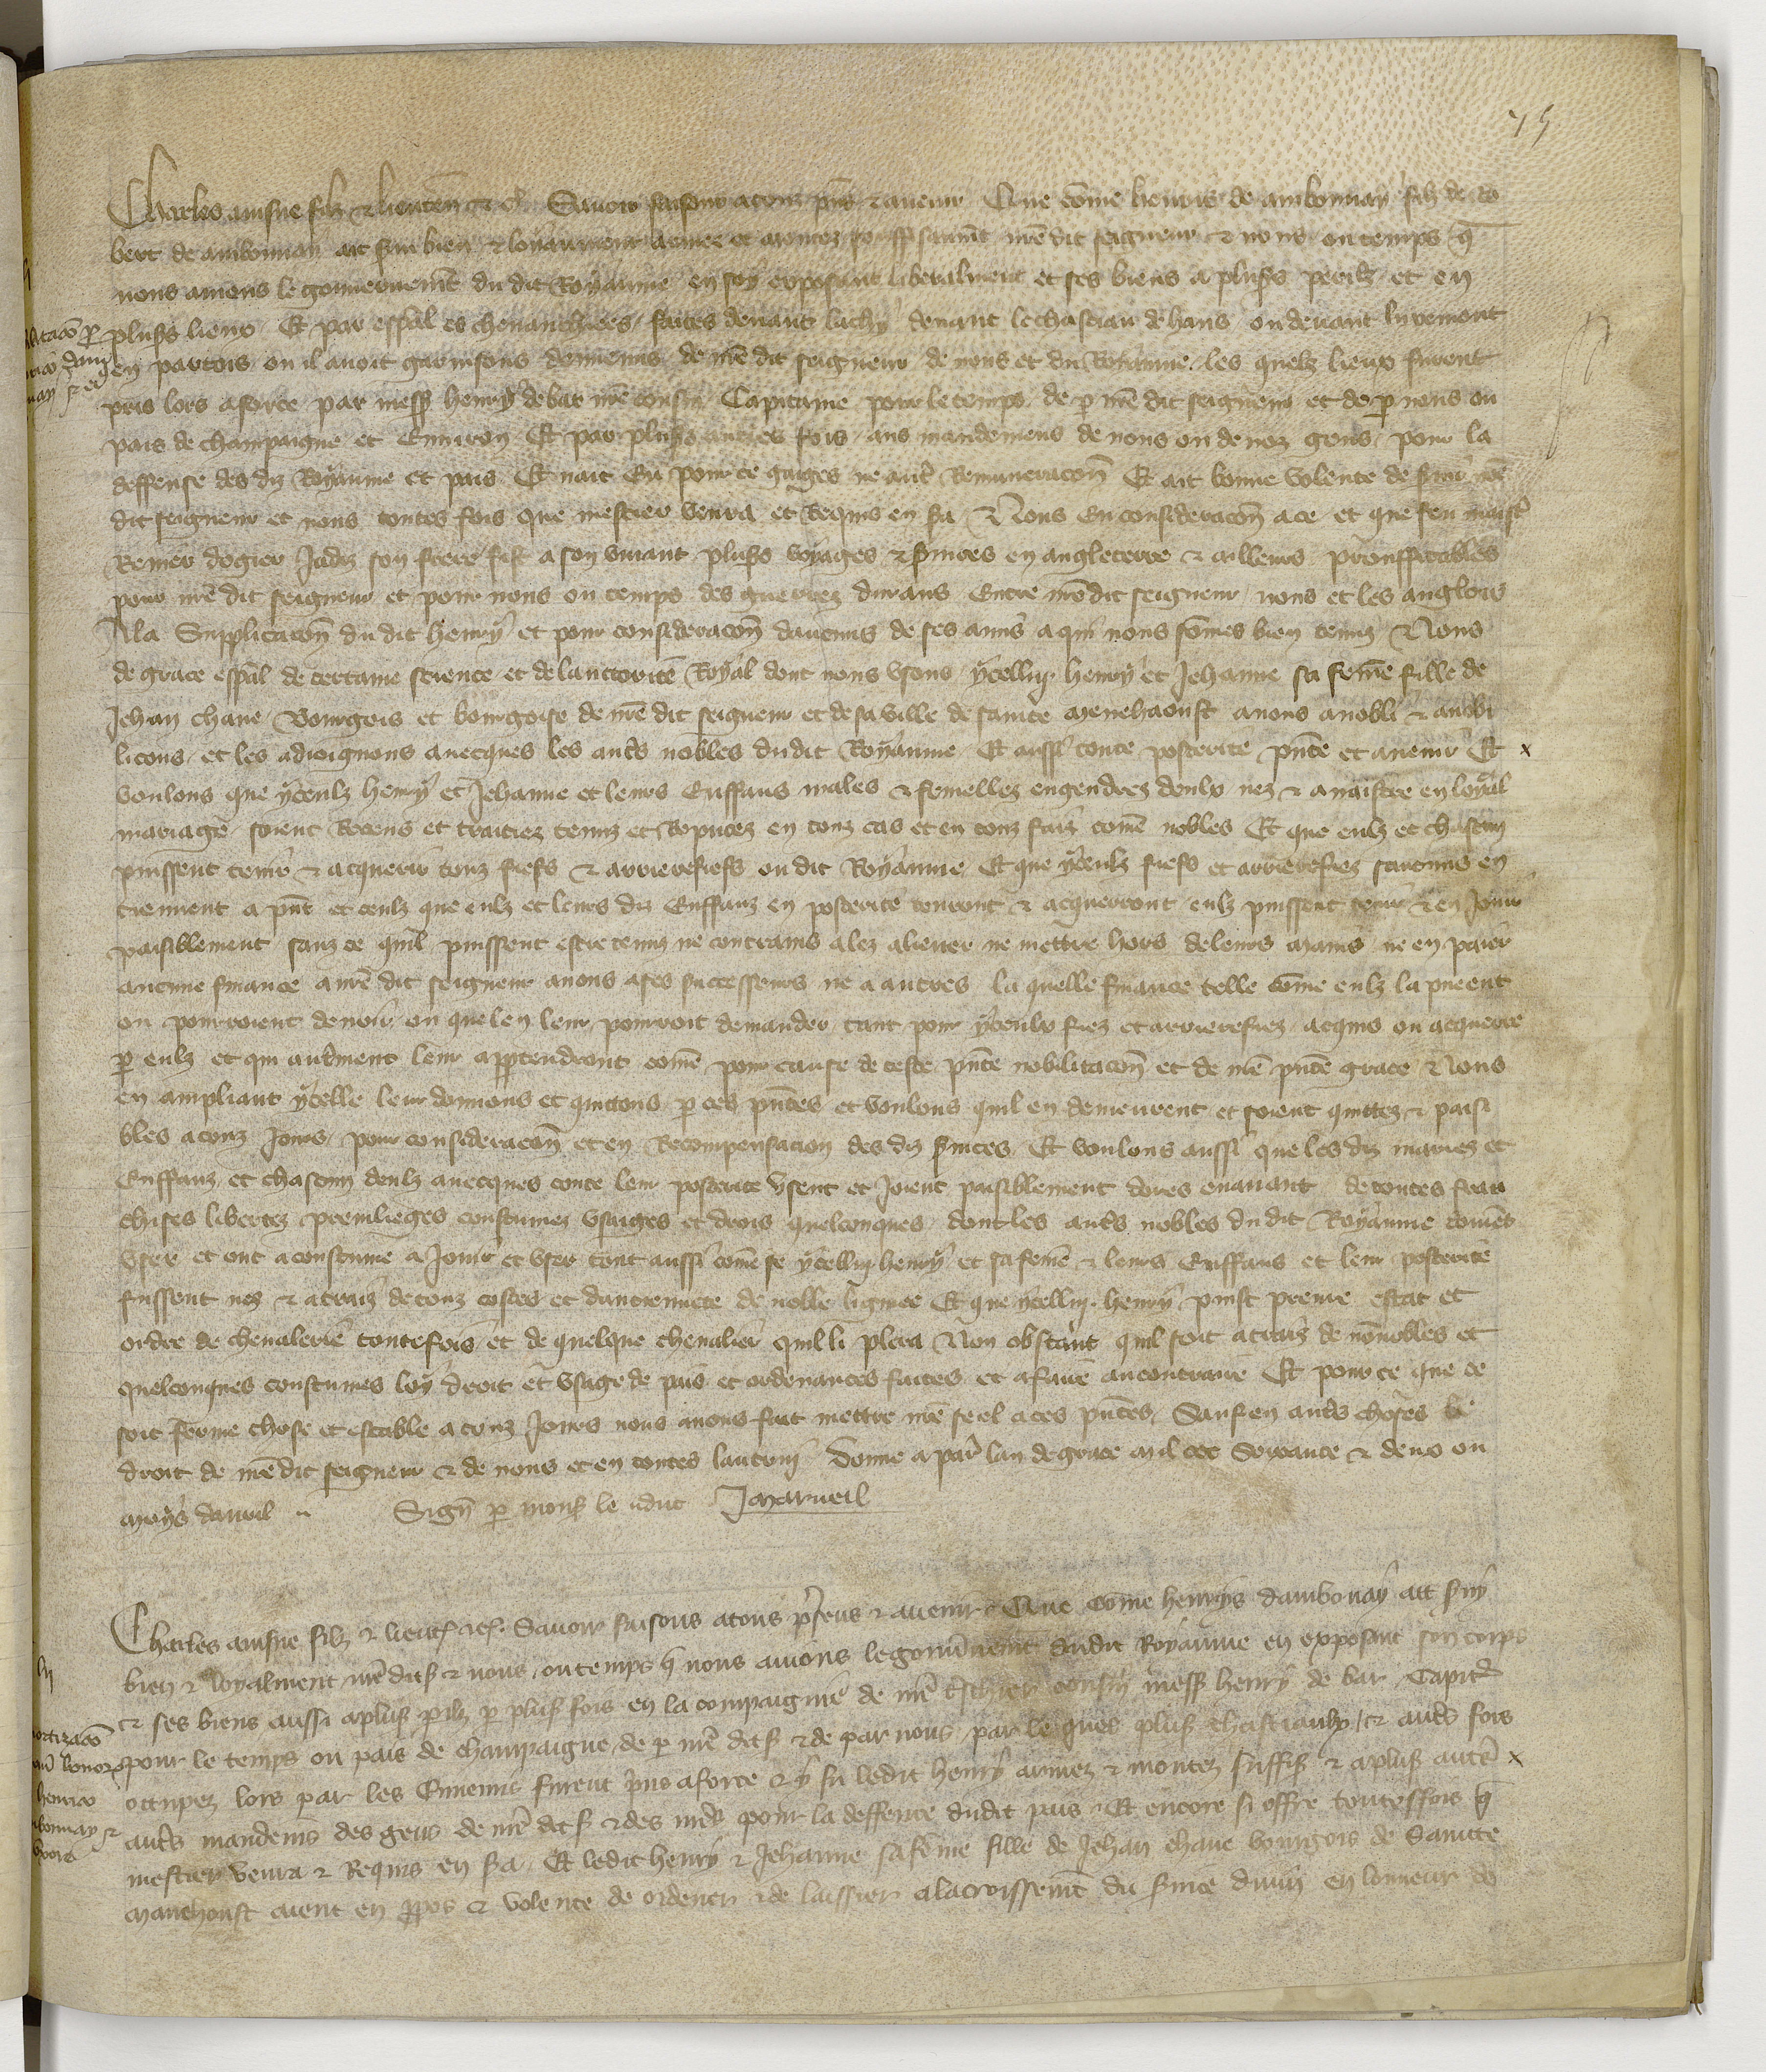 75
Charles ainsne filz & lieuten̄ &c̄. Savoir faisons a touz p̄ns & avenir Que cōme henris de ambonnay filz de Ro
bert de ambonnay ait servi bien & loyaument armez et montez souffisaūmt n̄re dit seigneur & nous ou temps q̄
nous aviens le gouvernem̄t du dit Royaume en soy exposant liberalment et ses biens a plus̄s perilz et en
plus̄s lieux Et par esp̄al es chevauchiees faites devant luchy devant le chastiau de hans ou devant livremont
en partois ou il avoit garnisons dennemis de n̄re dit seigneur de nous et du Royaume les quelz lieux furent
pris lors a force par mess̄ henry de bar n̄re cousin Capitaine pour le temps de p̄ n̄re dit seigneur et de p̄ nous ou
pais de champaigne et Environ Et par plus̄s autres fois aus mandemens de nous ou de noz gens pour la
deffense des diz Royaume et pais Et nait Eu pour ce gaiges ne aut̄ Remuneracōn Et ait bonne volente de s̄vir n̄re
dit seigneur et nous toutes fois que mestier venra et Requis en s̄a Nous En consideracōn a ce et que feu maist̄
Renier dogier Jadiz son frere fist a son vivant plus̄s voyages & s̄vices en angleterre & ailleurs prouffitables
pour n̄re dit seigneur et pour nous ou temps des guerres durans Entre n̄re dit seigneur nous et les anglois
A la Supplicacōn du dit henry et pour consideracōn daucuns de ses amis a qui nous sōmes bien tenuz Nous
de grace esp̄al de certaine science et de lauctorite Royal dont nous usons ycelluy henry et Jehanne sa fem̄e fille de
Jehan chane Bourgois et bourgoise de n̄re dit seigneur et de sa ville de saincte Menehoust avons anobli & anobi
licons et les adioignons avecques les aut̄s nobles dudit Royaume Et aussi toute posterite p̄nte et avenir Et x
voulons que yceulz henry et Jehanne et leurs Enffans males & femellez engendrez deulx nez & a naistre en loyal
mariage soient Receus et traitiez tenuz et Reputez en touz cas et en touz faiz com̄e nobles Et que eulz et chascun
puissent tenir & acquerir touz fiefs & arrierefiefs ou dit Royaume Et que yceulz fiefs et arrierefiez saucuns en
tiennent a p̄nt et ceulz que eulz et leurs diz Enffanz en posterite tenront & acquerront eulz puissent tenir & en Jouir
paisiblement sanz ce quil puissent estre tenuz ne contrains a lez aliener ne mettre hors de leurs mains ne en paier
aucune finance a n̄re dit seigneur a nous a ses successeurs ne a autres la quelle finance telle cōme eulz la pueent
ou pourroient devoir ou que len leur pourroit demander tant pour yceulx fiez et arrierefiez acquis ou acquerre
p̄ eulz et qui aut̄ment leur app̄tendront com̄e pour cause de ceste p̄nte nobilitacōn et de n̄re p̄nte grace Nous
en ampliant ycelle leur donnons et quittons p̄ ces p̄ntes et voulons quil en demeurent et soient quittez & paisi
bles a touz Jours pour consideracōn et en Recompensacion des diz s̄vices Et voulons aussi que les diz mariez et
Enffanz et chascun deulz avecques toute leur posterite Usent et Joient paisiblement dores enavant de toutes fran
chises libertez previlieges coustumes Usaiges et drois quelconques dont les aut̄s nobles du dit Royaume doivēt
User et ont acoustume a Jouir et User tout aussi com̄e se ycelluy henry et sa fem̄e & leurs Enffans et leur posterite
fussent nez & atraiz de touz costes et dancienncte de noble lignee Et que ycelluy henry puist prenre estat et
ordre de chevalerie toutefois et de quelque chevalier quil li plera Non obstant quil soit atraiz de nōnobles et
quelconques coustumes loy droit et Usage de pais et ordenances faites et a faire au contraire Et pour ce que ce
soit ferme chose et estable a touz Jours nous avons fait mettre n̄re seel a ces p̄ntes Sauf en aut̄s choses le
droit de n̄re dit seigneur & de nous et en toutes lautruy Donne a par̄ lan de grace Mil ccc Soixante & deux ou
moys davril .. Sign̄ p̄ mons̄ le duc J Marueil
Charles ainsne filz & lieut̄ &c̄. Savoir faisons a tous p̄sens & avenir Que Cōme henrys dambonay ait s̄vy
bien & loyalment n̄re dit s̄ & nous ou temps q̄ nous avions le gouv̄nem̄t dudit Royaume en exposant son corps
& ses biens aussi a plus̄ p̄ilz p̄ plus̄ fois en la compaignie de n̄re t̄schier cousin mess̄ henry de bar Capit̄
pour le temps ou pais de champaigne de p̄ n̄re dit s̄ & de par nous par le quel plus̄ chastiaulx & aut̄s fors
occupez lors par les Ennemis furent p̄ns a force & y fu ledit henry armez & montez suffis̄ & a plus̄ aut̄e x
aut̄s mandem̄s des gens de n̄re dit s̄ & des n̄res pour la deffence dudit pais Et encore si offre toutesfois q̄
mestier venra & Requis en s̄a Et ledit henry & Jehanne sa fēme fille de Jehan chane bourgois de Saincte
Manehoust aient en p̄pos & volente de ordener & de laissier a lacroissem̄t du s̄vice divin en lonneur de